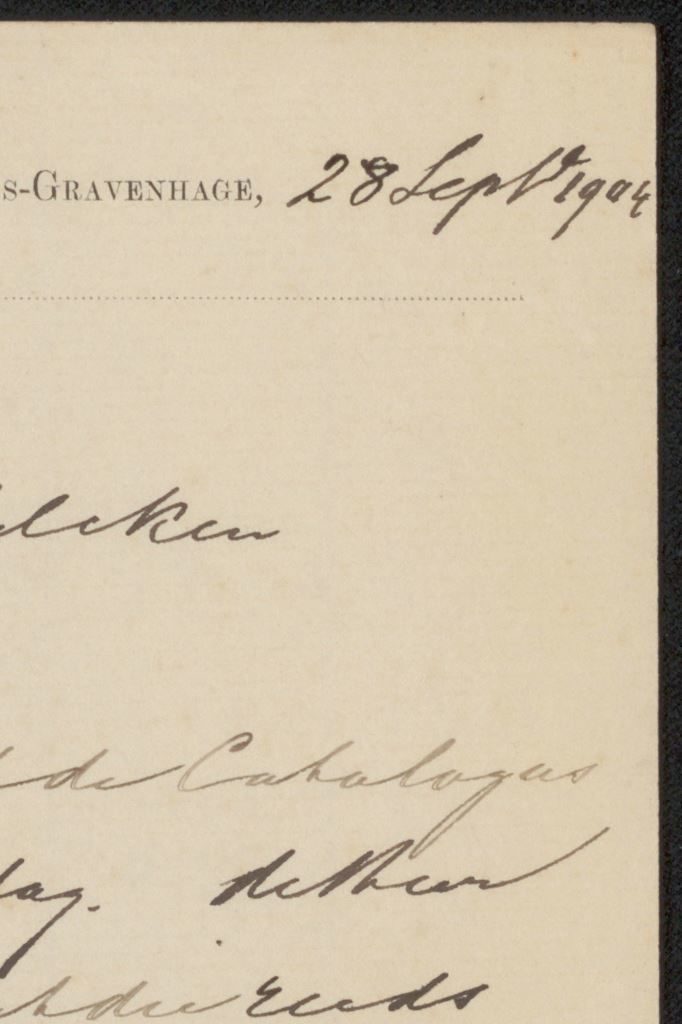 s-Gravenhage, 28 Septr 1904
lcken
de Catalogus
dag. de Heer
die reeds